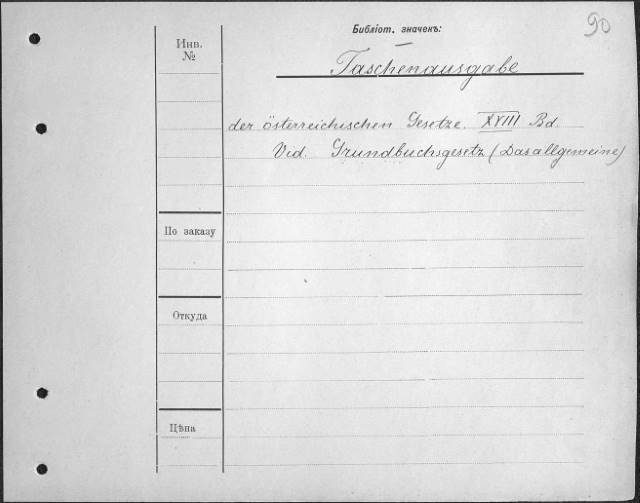 90
Библіот. значекъ:
Инв.
№
Taschenausgabe
der österreichischen Gesetze. XVIII Bd.
Vid. Grundbuchsgesetz (Das allgemeine)
По заказу
Откуда
Цѣна